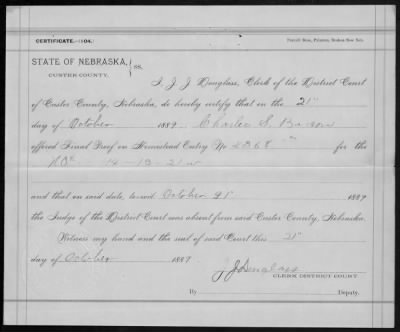 CERTIFICATE.—1804.
Purcell Bros., Printers, Broken Bow Neb.
STATE OF NEBRASKA, } ss.
CUSTER COUNTY.
I, J J Douglass, Clerk of the District Court
of Custer County, Nebraska, do hereby certify that on the 21"
day of October 1889 Charles S.
offered Final Proof on Homestead Entry No 2868 for the
14-13-21 w
and that on said date, to-wit October 21" 1889
the Judge of the District Court was absent from said Custer County, Nebraska.
Witness my hand and the seal of said Court this 21"
day of October 1889
J J Douglass
CLERK DISTRICT COURT.
By Deputy.